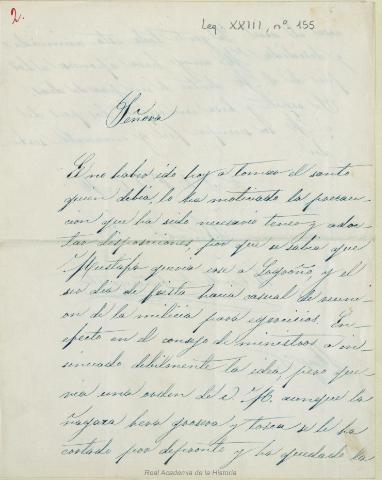 2.
Leg. XXIII, nº 155
Señora
El no haber ido hoy a tomar el santo
quien debia lo ha motivado la precau-
cion que ha sido necesario tener y adoc-
tar disposiciones, por que se sabia que
Mustafa queria irse a Logroño, y el
ser dia de fiesta hacia casual de reuni-
on de la milicia para egercicios. En
efecto en el consejo de ministros a in-
sinuado debilmente la idea, pero que-
ria una orden de V. M. aunque la
ñagaza hera grosera y tosca se le ha
cortado por defronte y ha quedado la
Real Academia de la Historia